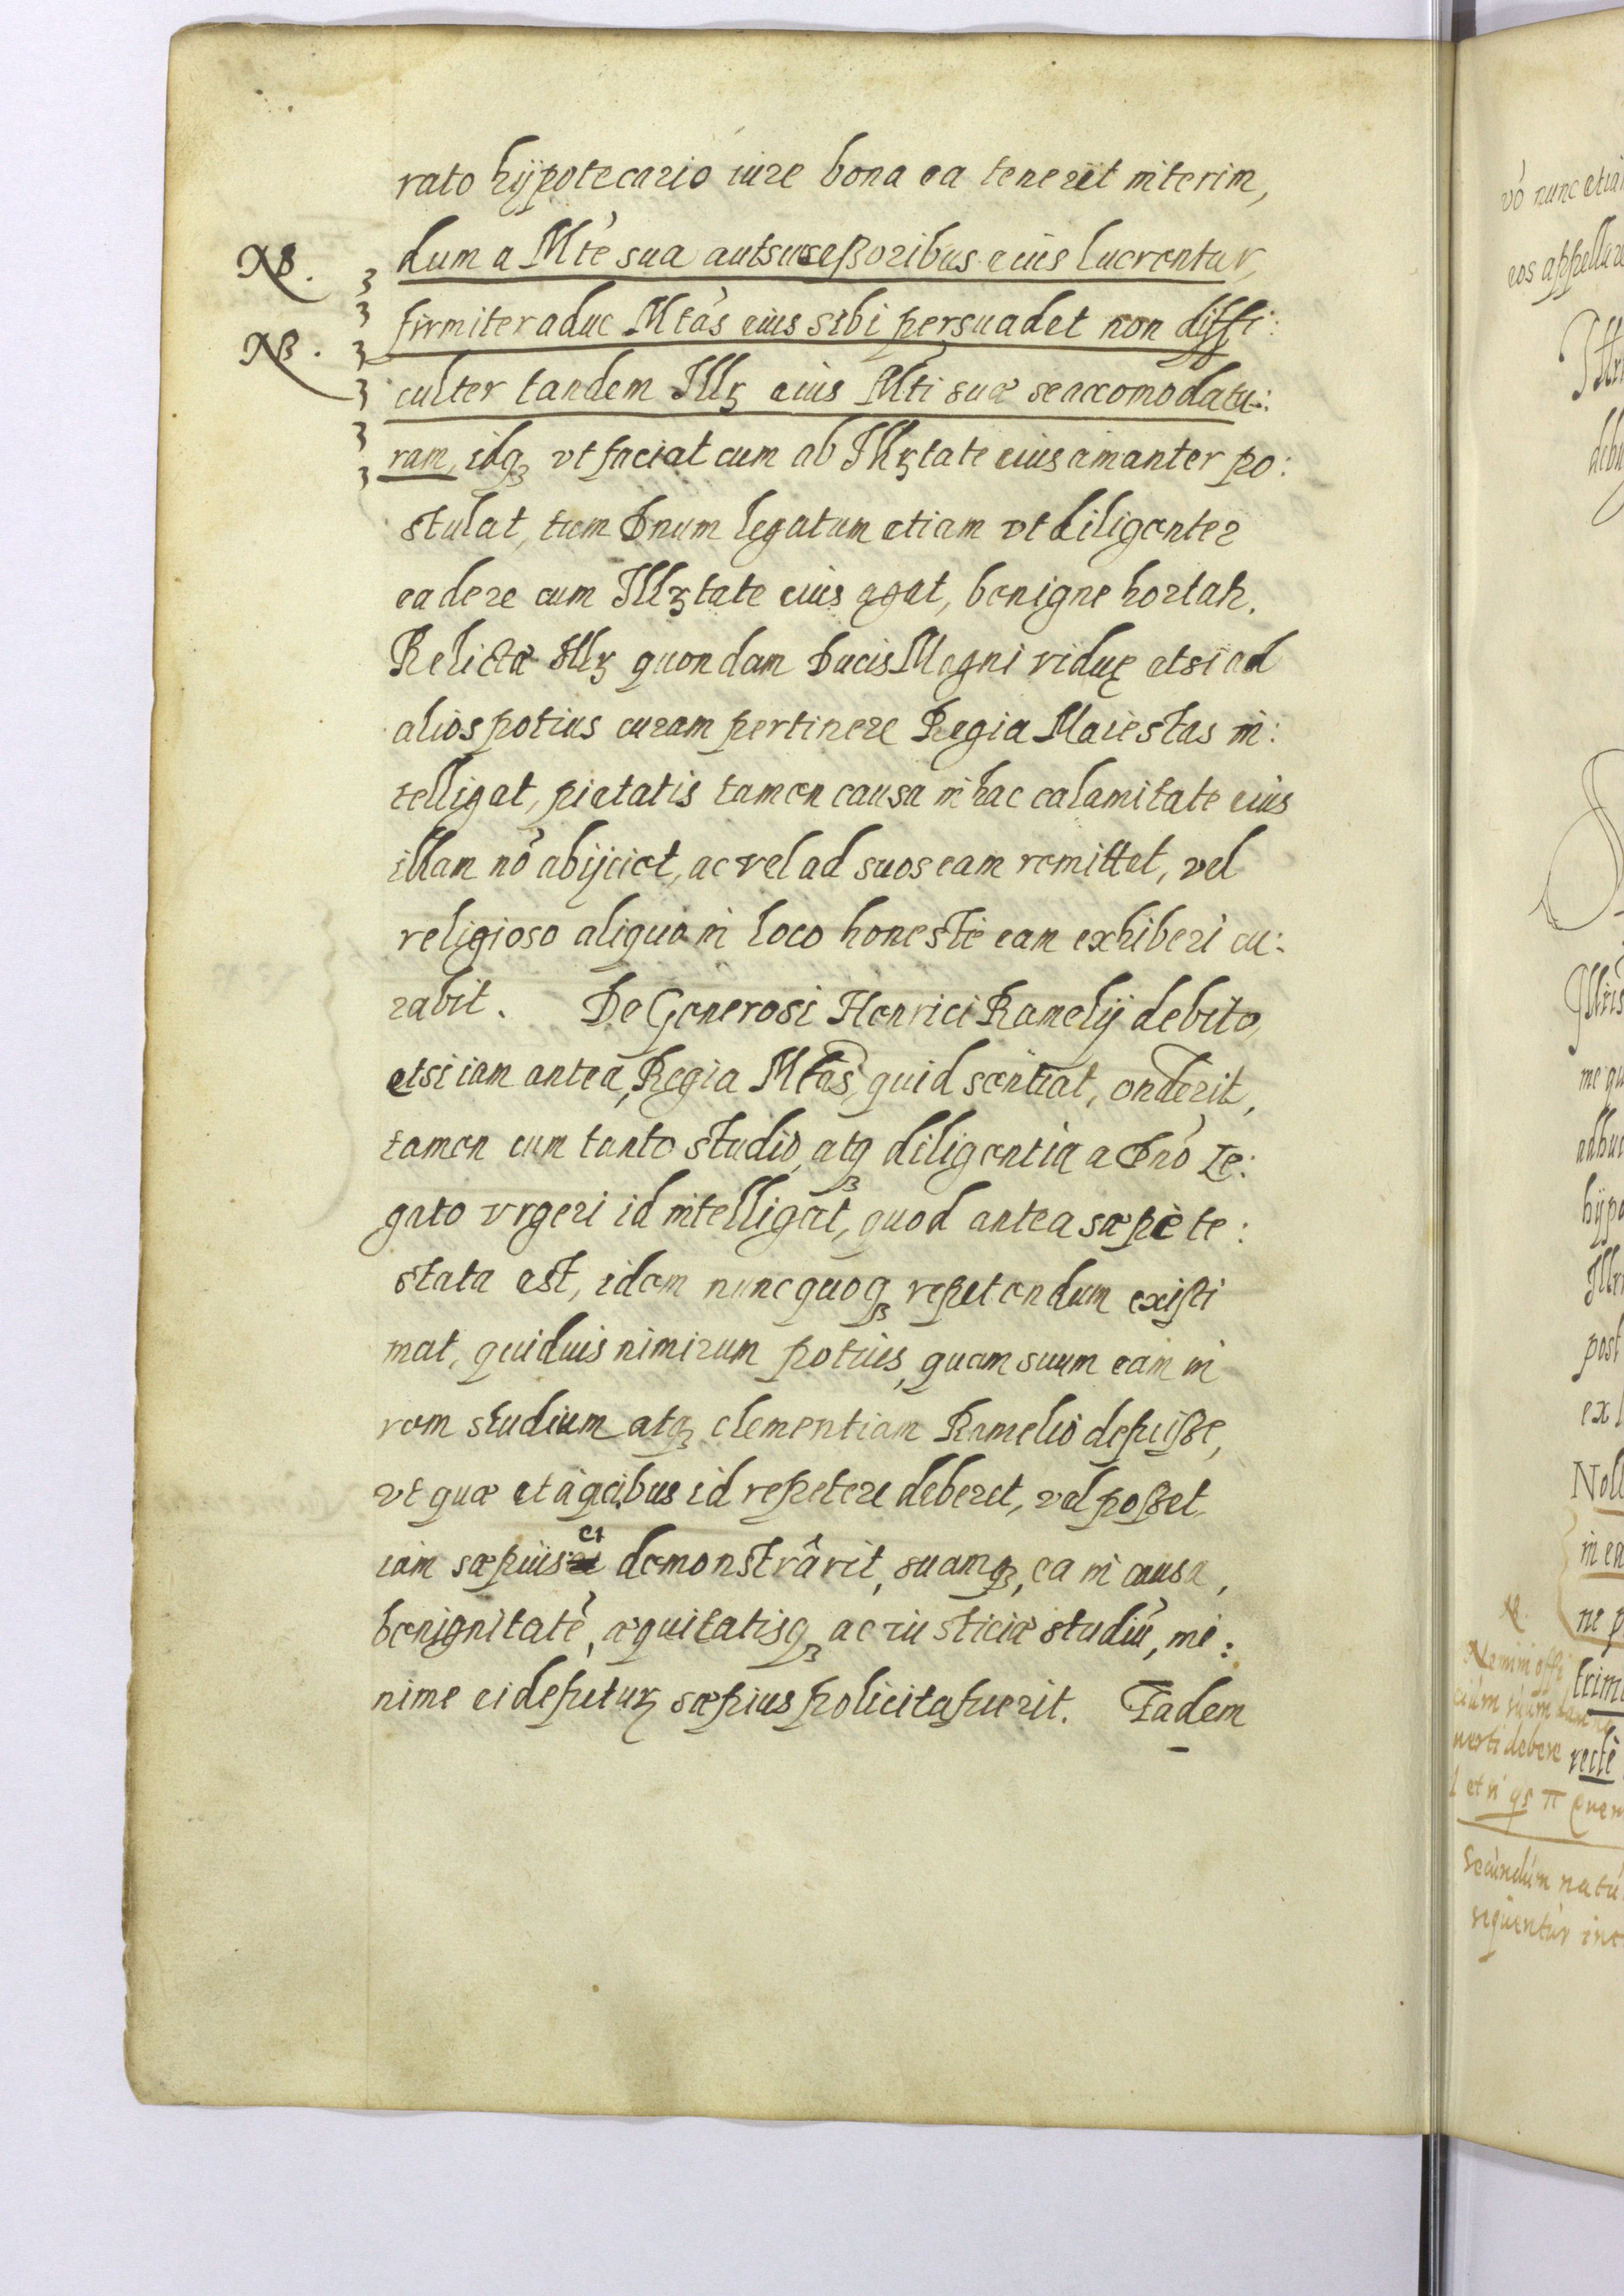 rato hypotecario iure bona ea tenerit interim,
NB. dum a Mte sua aut sucessoribus eius lucrentur,
firmiter aduc Mtas eius sibi persuadet non diffi:
NB. culter tandem Illr eius Mti suæ se accomodatu:
ram, idq ut faciat cum ab Illrtate eius amanter po:
stulat, tum Dnum legatum etiam vt diligenter
ea de re cum Illrtate eius agat, benigne hortatr.
Relictæ Illr quondam Ducis Magni viduę etsi ad
alios potius curam pertinere Regia Maiestas in:
telligat, pietatis tamen causa in hac calamitate eius
illam nō abijciet, ac vel ad suos eam remittet, vel
religioso aliquo in loco honestè eam exhiberi cu:
rabit. De Generosi Henrici Ramelij debito,
etsi iam antea, Regia Mtas, quid sentiat, onderit,
tamen cum tanto studio, atq diligentia a Dnō Le:
gato vrgeri id intelligat, quod antea sæpè te:
stata est, idem nunc quoq repetendum existi
mat, quiduis nimirum potius, quam suum eam in
rem studium atq clementiam Ramelio defuisse,
vt quæ et à quibus id repetere deberet, vel posset
iam sæpius ei demonstrârit, suamq, ea in causa,
benignitatē, æquitatisq ac iusticiæ studiū, mi:
nime ei defuturr sæpius policita fuerit. Eadem
vō nunc etia
eos appellare
hijpo
post
ex
Nol
in ea
ne p
trim
rectè
Nemini offi
cium suum
debere
Secundum natu
sequentur inc